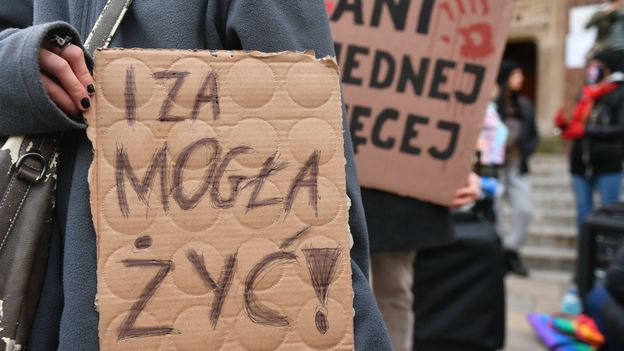 IZA
MOGŁA
ŻYĆ!
ANI
JEDNEJ
WIĘCEJ